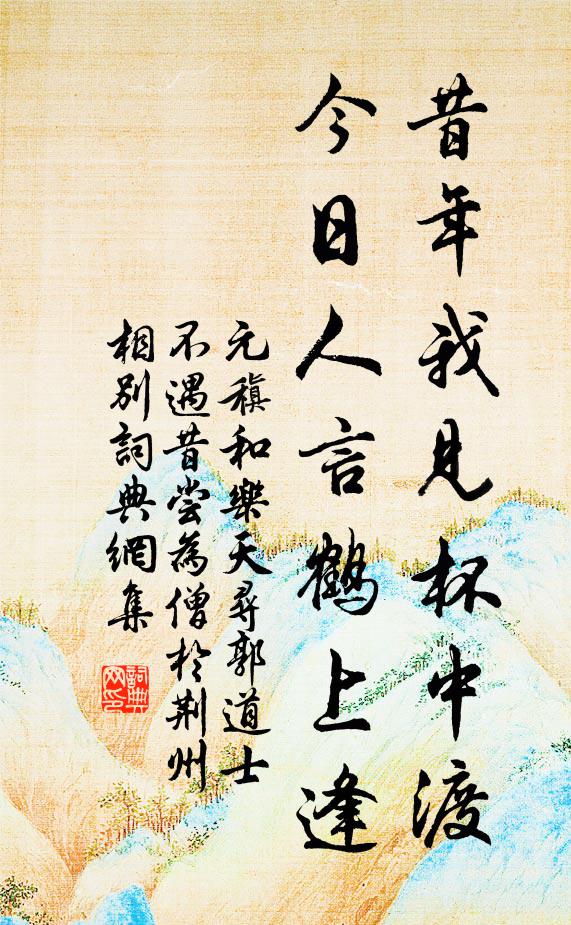 昔年我見杯中渡
今日人言鶴上逢
元稹和樂天尋郭道士
不遇昔嘗為僧於荆州
相別詞典網集
詞典
网印